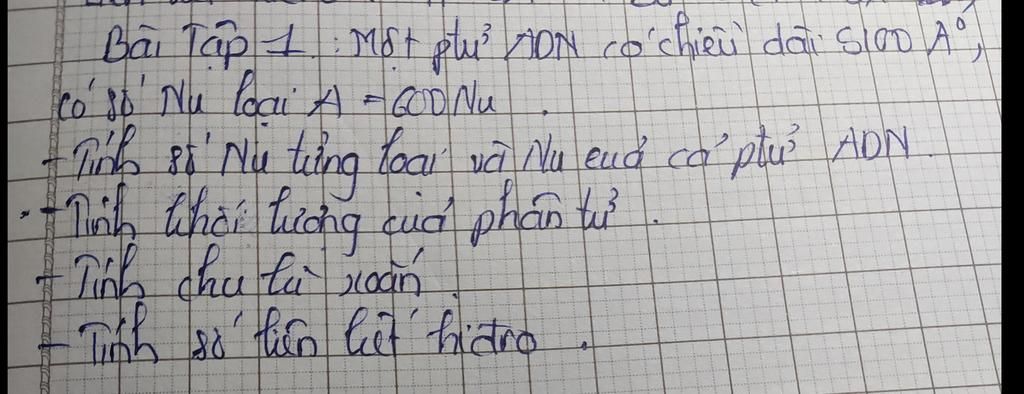 Bài Tập 1: Một ptử ADN có chiều dài 5100 A°,
có số Nu loại A = 600 Nu.
+ Tính số Nu từng loại và Nu của cả ptử ADN.
+ Tính khối lượng của phân tử.
+ Tính chu kì xoắn.
+ Tính số liên kết hiđro.